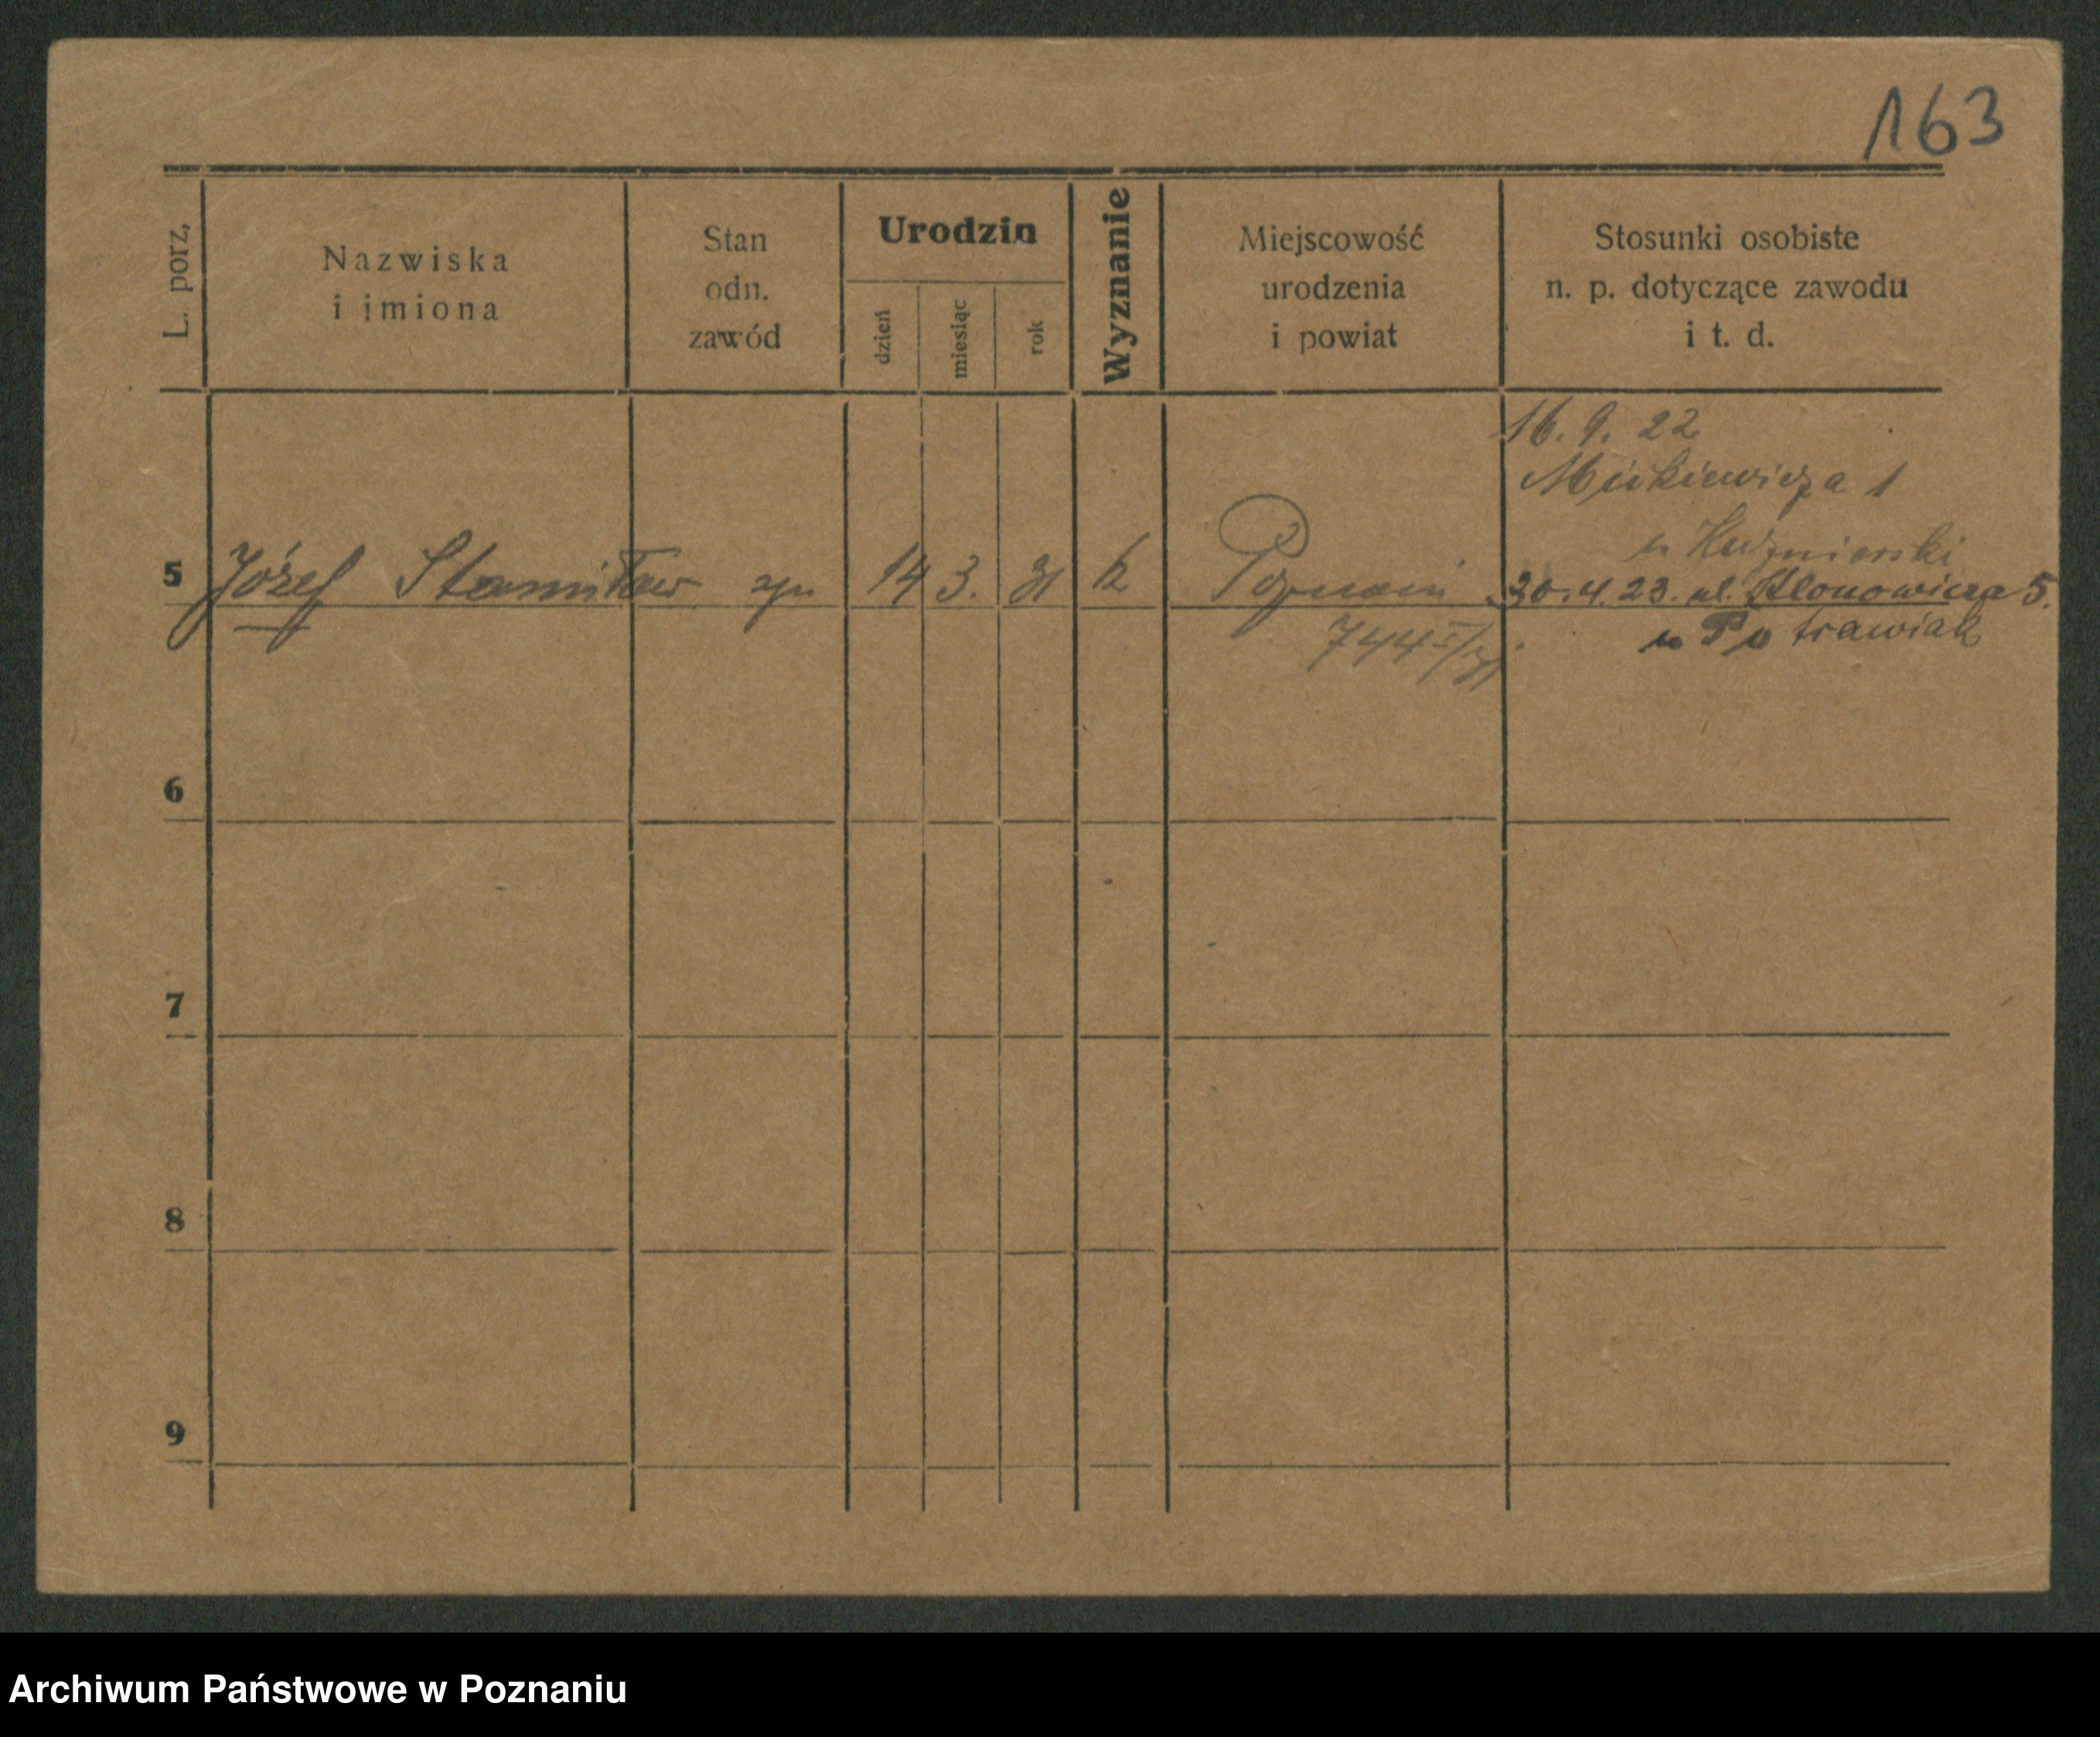 163
L. porz,
Nazwiska
i imiona
Stan
odn.
zawód
Urodzin
dzień
miesiąc
rok
Wyznanie
Miejscowość
urodzenia
i powiat
Stosunki osobiste
n. p. dotyczące zawodu
i t. d.
16. 9. 22
Mickiewicza 1
u Kuźniarski
5 Józef Stanisław 14 3. 21 k Poznań 30.4.23. ul. Klonowicza 5.
744
u Potrawiak
6
7
8
9
Archiwum Państwowe w Poznaniu